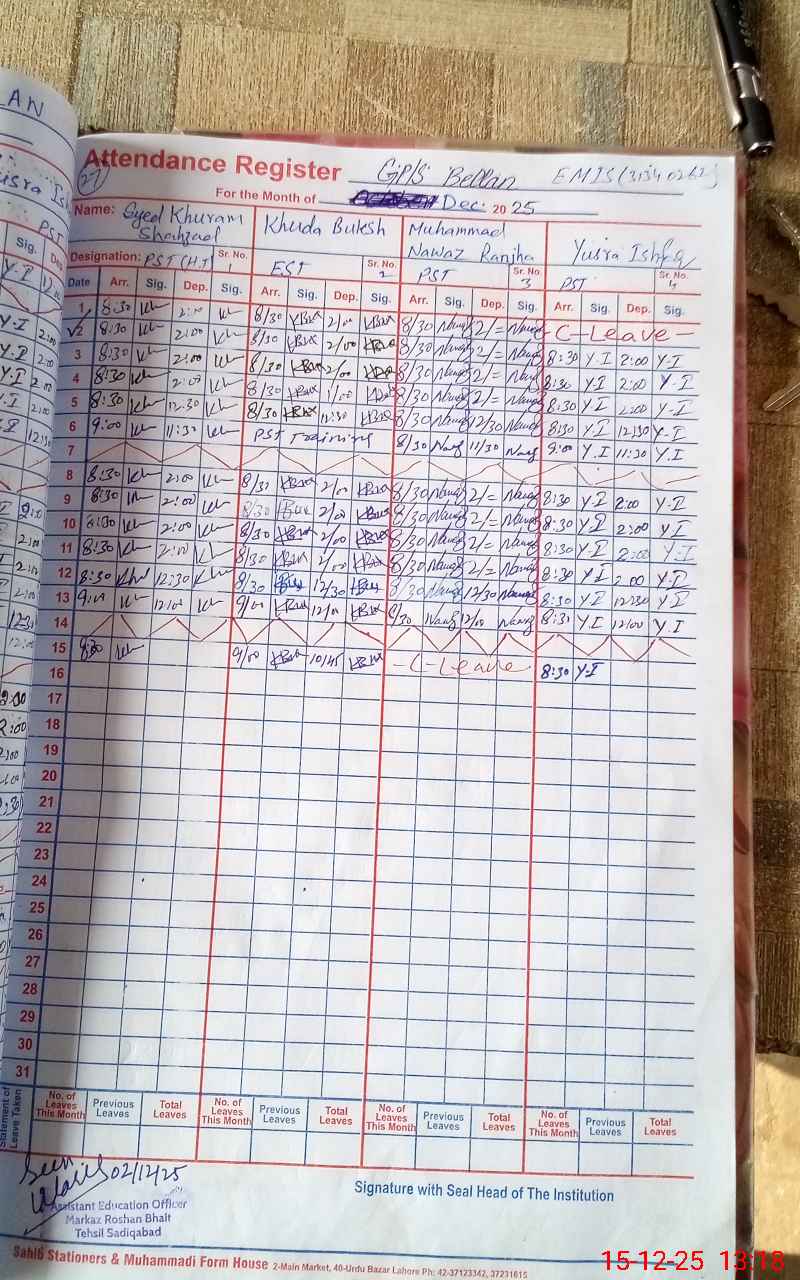 LAN
Attendance Register GP/S Bellan EMIS (31340262)
27
For the Month of Dec: 2025
Name: Syed Khuram Shahzad Khuda Buksh Muhammad Nawaz Ranjha Yusra Ishfq
Designation: PST (H.T) Sr. No. 1 EST Sr. No. 2 PST Sr. No. 3 PST Sr. No. 4
Date Arr. Sig. Dep. Sig. Arr. Sig. Dep. Sig. Arr. Sig. Dep. Sig. Arr. Sig. Dep. Sig.
1 8:30 Kh 2:00 Kh 8/30 KBux 2/00 KBux 8/30 Nawaz 2/= Nawaz -C-Leave-
2 8:30 Kh 2:00 Kh 8/30 KBux 2/00 KBux 8/30 Nawaz 2/= Nawaz 8:30 Y.I 2:00 Y.I
3 8:30 Kh 2:00 Kh 8/30 KBux 2/00 KBux 8/30 Nawaz 2/= Nawaz 8:30 Y.I 2:00 Y.I
4 8:30 Kh 2:00 Kh 8/30 KBux 1/00 KBux 8/30 Nawaz 2/= Nawaz 8:30 Y.I 2:00 Y.I
5 8:30 Kh 12:30 Kh 8/30 KBux 12:30 KBux 8/30 Nawaz 12/30 Nawaz 8:30 Y.I 12:30 Y.I
6 9:00 Kh 11:30 Kh PST Training 8/30 Nawaz 11/30 Nawaz 9:00 Y.I 11:30 Y.I
7
8 8:30 Kh 2:00 Kh 8/30 KBux 2/00 KBux 8/30 Nawaz 2/= Nawaz 8:30 Y.I 2:00 Y.I
9 8:30 Kh 2:00 Kh 8/30 KBux 2/00 KBux 8/30 Nawaz 2/= Nawaz 8:30 Y.I 2:00 Y.I
10 8:30 Kh 2:00 Kh 8/30 KBux 2/00 KBux 8/30 Nawaz 2/= Nawaz 8:30 Y.I 2:00 Y.I
11 8:30 Kh 2:00 Kh 8/30 KBux 2/00 KBux 8/30 Nawaz 2/= Nawaz 8:30 Y.I 2:00 Y.I
12 8:30 Kh 12:30 Kh 8/30 KBux 12/30 KBux 8/30 Nawaz 12/30 Nawaz 8:30 Y.I 12:30 Y.I
13 9:00 Kh 12:00 Kh 9/00 KBux 12/00 KBux 8/30 Nawaz 12/00 Nawaz 8:30 Y.I 12:00 Y.I
14
15 8:30 Kh 9/00 KBux 10/45 KBux -C-Leave- 8:30 Y.I
16
17
18
19
20
21
22
23
24
25
26
27
28
29
30
31
Statement of Leave Taken
No. of Leaves This Month Previous Leaves Total Leaves No. of Leaves This Month Previous Leaves Total Leaves No. of Leaves This Month Previous Leaves Total Leaves No. of Leaves This Month Previous Leaves Total Leaves
Seen
02/12/25
Signature with Seal Head of The Institution
Assistant Education Officer
Markaz Roshan Bhait
Tehsil Sadiqabad
Sahib Stationers & Muhammadi Form House 2-Main Market, 40-Urdu Bazar Lahore Ph: 42-37123342, 37231615
15-12-25 13:18